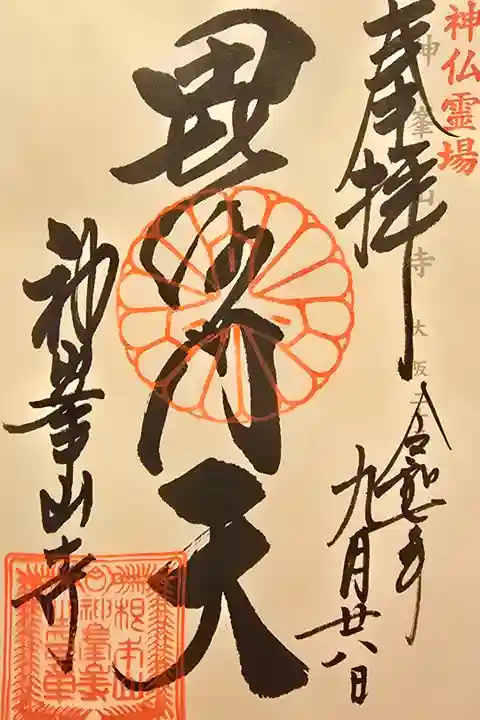 神仏霊場
神峯山寺 大阪
奉拝
令和七年
九月廿八日
毘沙門天
神峯山寺